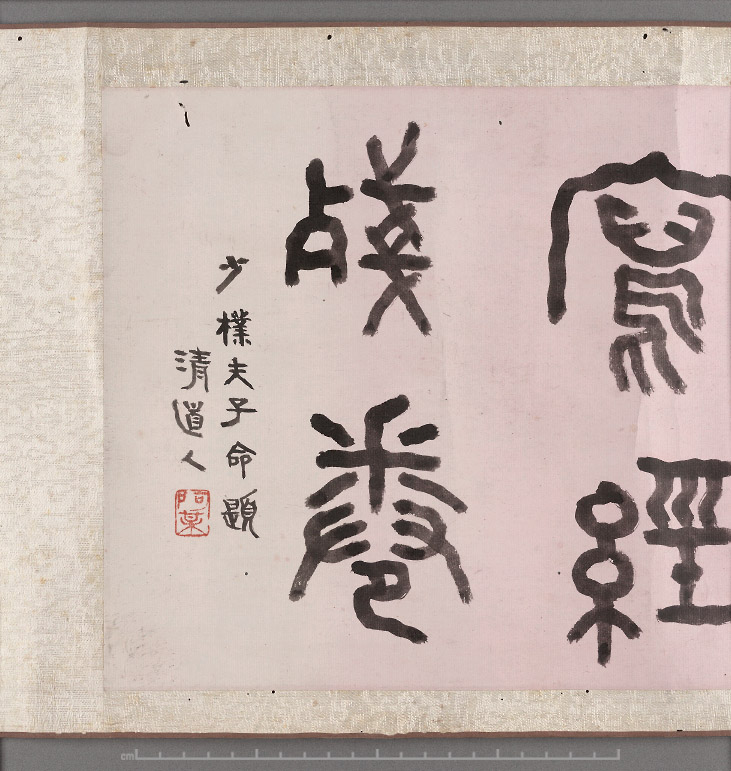 寫經
殘卷
少樸夫子命題
清道人
阿某
cm